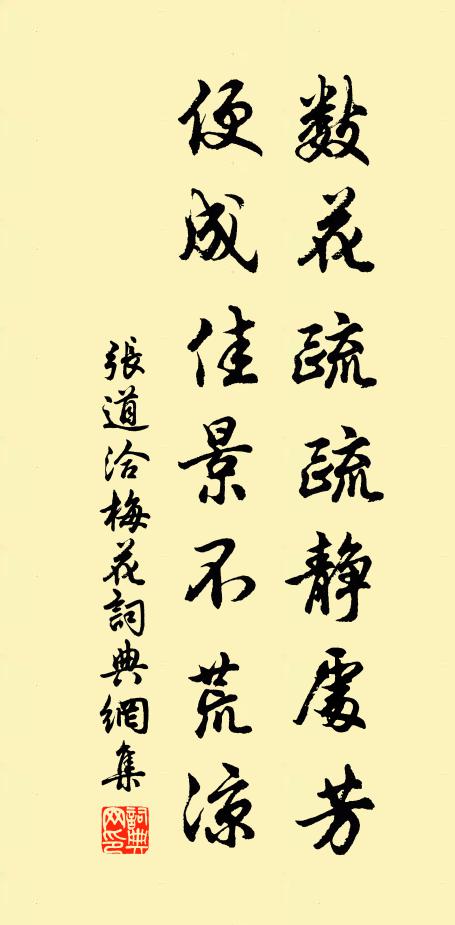 数花疏疏静處芳
便成佳景不荒涼
張道洽梅花詞典網集
詞典網印